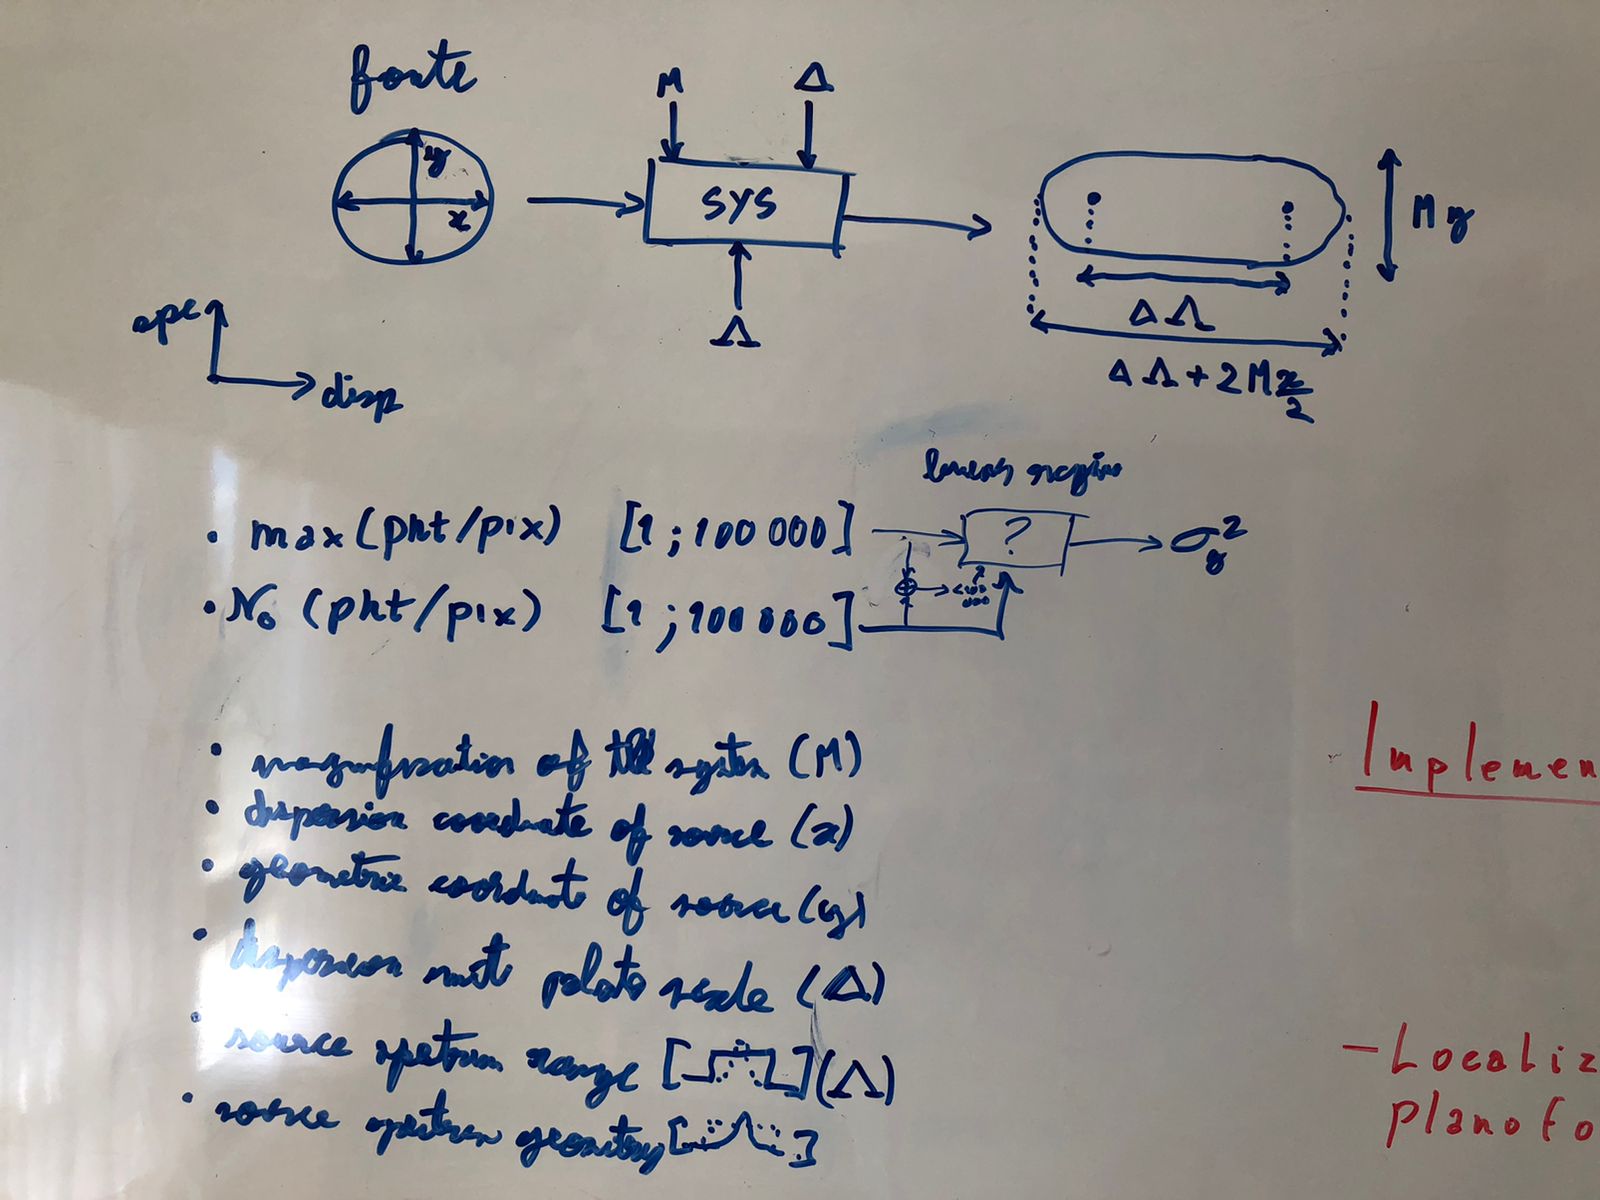 fonte
M Δ
y
x
SYS
My
Λ
ΔΛ
ΔΛ + 2M x/2
disp
• max (pht/pix) [1 ; 100 000] ? σy²
• N₀ (pht/pix) [1 ; 100 000]
• magnification of the system (M)
• dispersion coordinate of source (x)
• geometric coordinate of source (y)
• dispersion unit plate scale (Δ)
• source spectrum range [ ] (Λ)
• source spectrum geometry [ ]
Implemen
- Localiz
plano fo